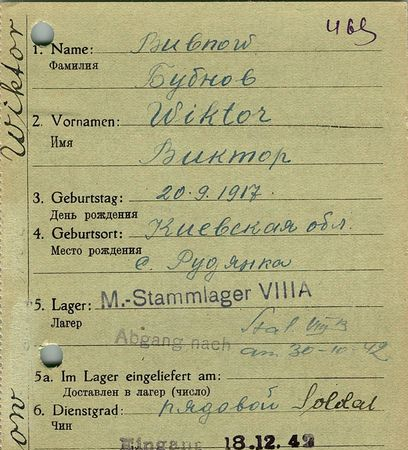 469
1. Name: Bubnow
Фамилия
Бубнов
2. Vornamen: Wiktor
Имя
Виктор
3. Geburtstag: 20.9.1917.
День рождения
4. Geburtsort: Киевская обл.
Место рождения
с. Рудянка
5. Lager: M.-Stammlager VIIIA
Лагер
Abgang nach Stal. VIIIB
am 30-10-42
5a. Im Lager eingeliefert am:
Доставлен в лагер (число)
6. Dienstgrad: рядовой Soldat
Чин
Eingang 18.12.42
Wiktor
ow